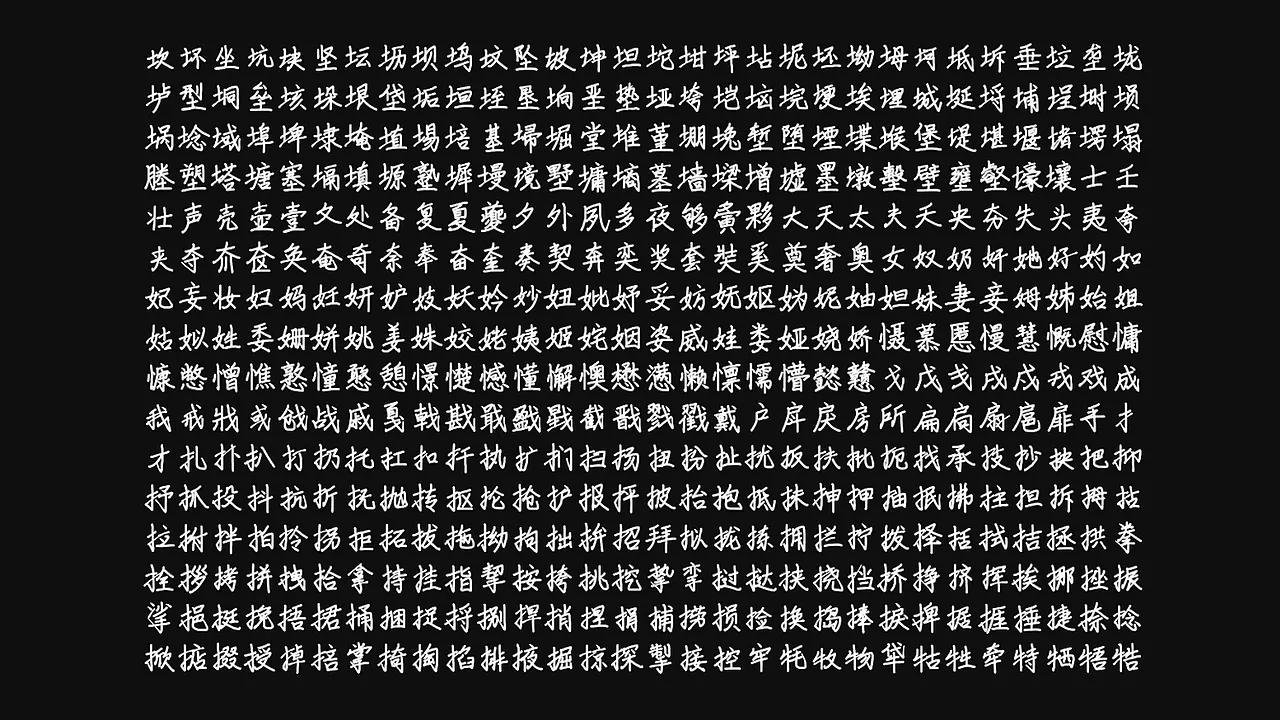 坎坏坐坑块坚坛坜坝坞坟坠坡坤坦坨坩坪坫坭坯坳坶坷坻坼垂垃垄垅
垆型垌垒垓垛垠垡垢垣垤垦垧垩垫垭垮垲垴垸埂埃埋城埏埒埔埕埘埙
埚埝域埠埤埭埯埴埸培基埽堀堂堆堇堋堍堑堕堙堞堠堡堤堪堰堵塄塌
塍塑塔塘塞塥填塬塾墀墁境墅墉墒墓墙墚增墟墨墩墼壁壅壑壕壤士壬
壮声壳壶壹夂处备复夏夔夕外夙多夜够夤夥大天太夫夭央夯失头夷夸
夹夺夼奁奂奄奇奈奉奋奎奏契奔奕奖套奘奚奠奢奥女奴奶奸她好妁如
妃妄妆妇妈妊妍妒妓妖妗妙妞妣妤妥妨妩妪妫妮妯妲妹妻妾姆姊始姐
姑姒姓委姗姘姚姜姝姣姥姨姬姹姻姿威娃娄娅娆娇慑慕慝慢慧慨慰慵
慷憋憎憔憝憧憨憩憬憷憾懂懈懊懋懑懒懔懦懵懿戆戈戊戋戌戍戎戏成
我戒戕或戗战戚戛戟戡戢戥戤戬截戬戮戳戴户戽戾房所扁扃扇扈扉手扌
才扎扑扒打扔托扛扣扦执扩扪扫扬扭扮扯扰扳扶批扼找承技抄抉把抑
抒抓投抖抗折抚抛抟抠抡抢护报抨披抬抱抵抹抻押抽抿拂拄担拆拇拈
拉拊拌拍拎拐拒拓拔拖拗拘拙拚招拜拟拢拣拥拦拧拨择括拭拮拯拱拳
拴拶拷拼拽拾拿持挂指挈按挎挑挖挚挛挝挞挟挠挡挢挣挤挥挨挪挫振
挲挹挺挽捂捃捅捆捉捋捌捍捎捏捐捕捞损捡换捣捧捩捭据捱捶捷捺捻
掀掂掇授掉掊掌掎掏掐排掖掘掠探掣接控牢牦牧物牮牯牲牵特牺牾牿